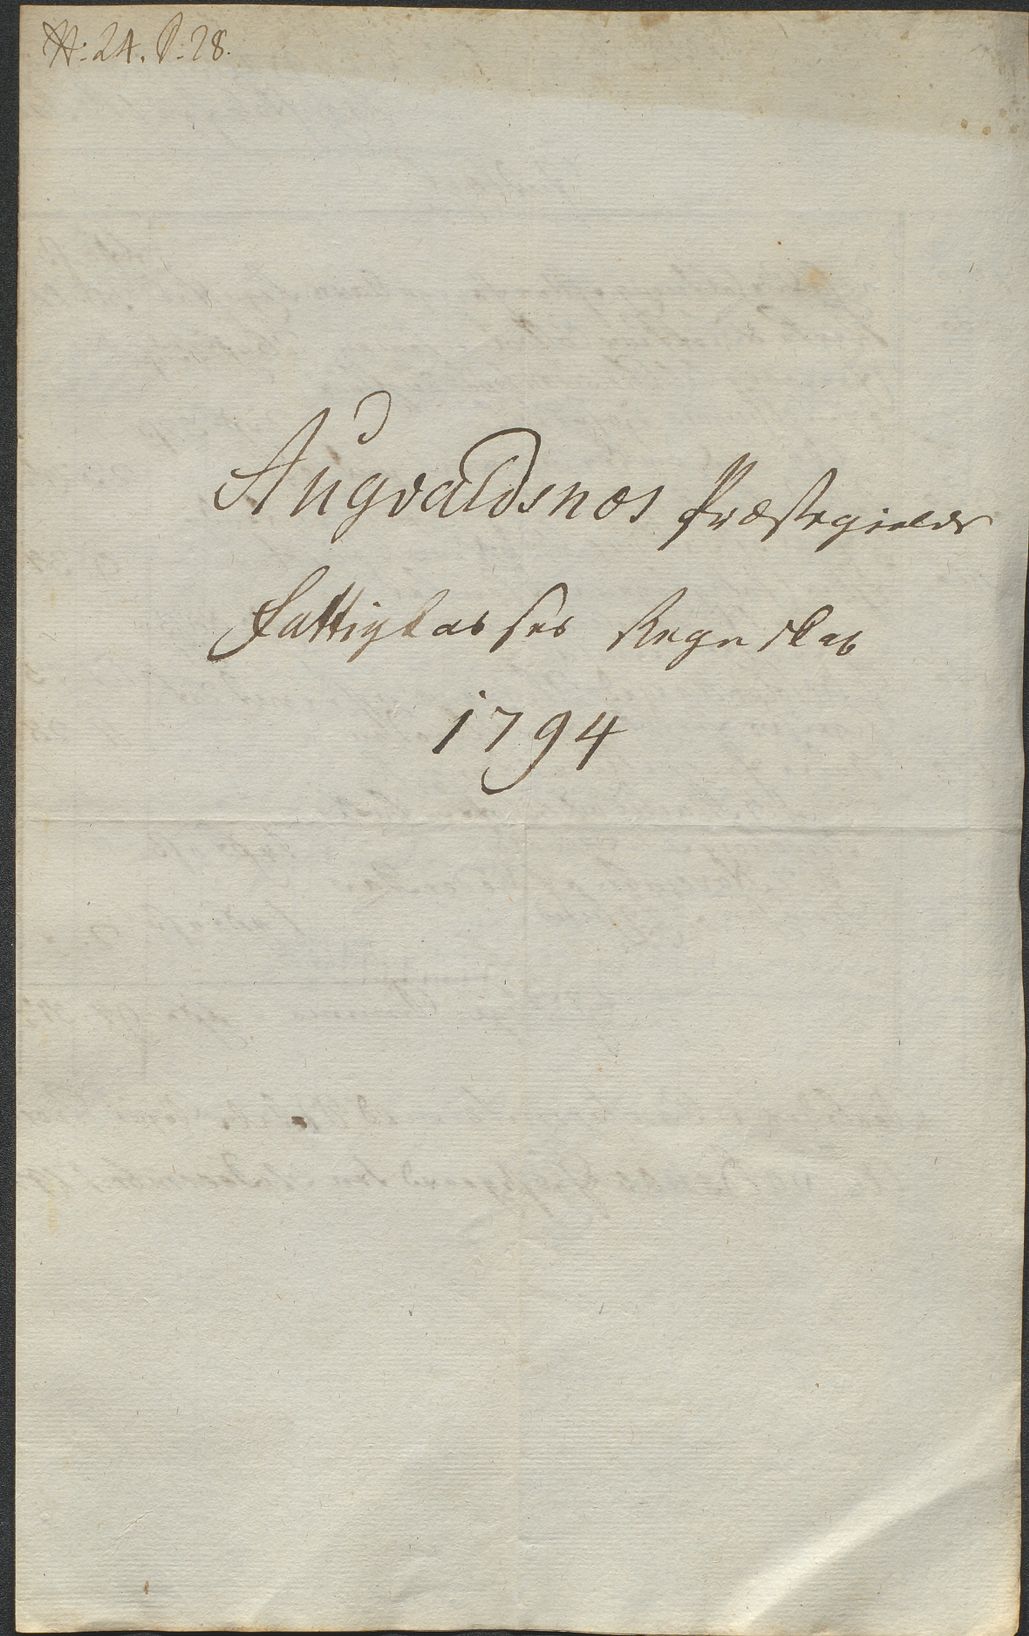 N: 24. P: 28.
Augvaldsnæs Præstegields
Fattigkasses Regnskab
1794